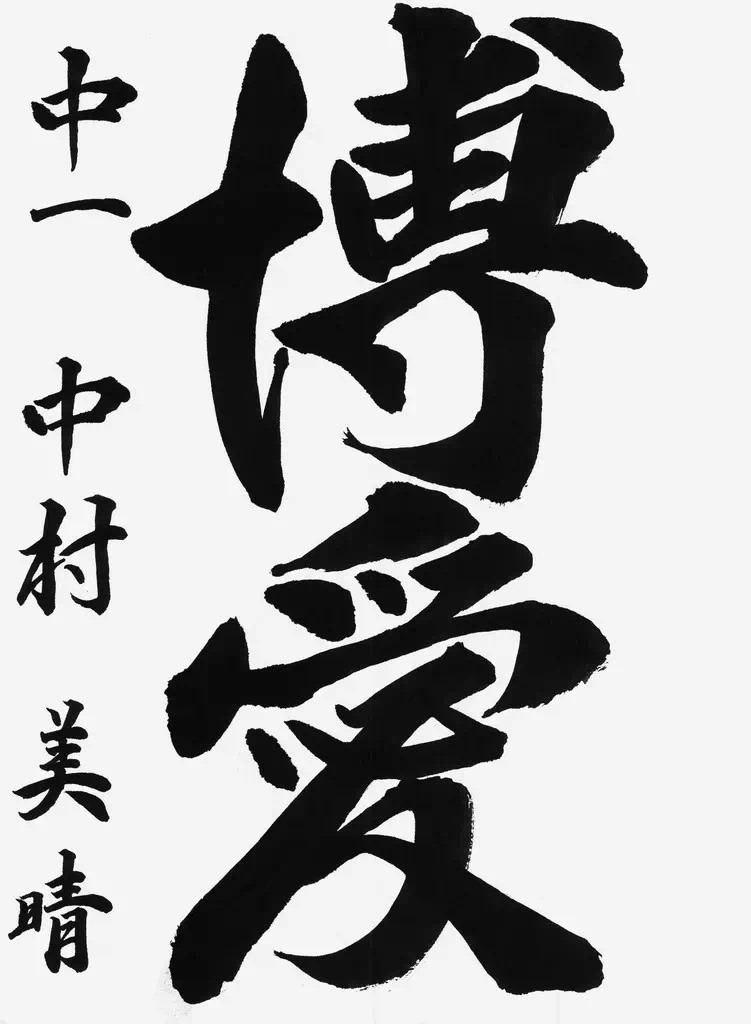 博愛
中一 中村 美晴